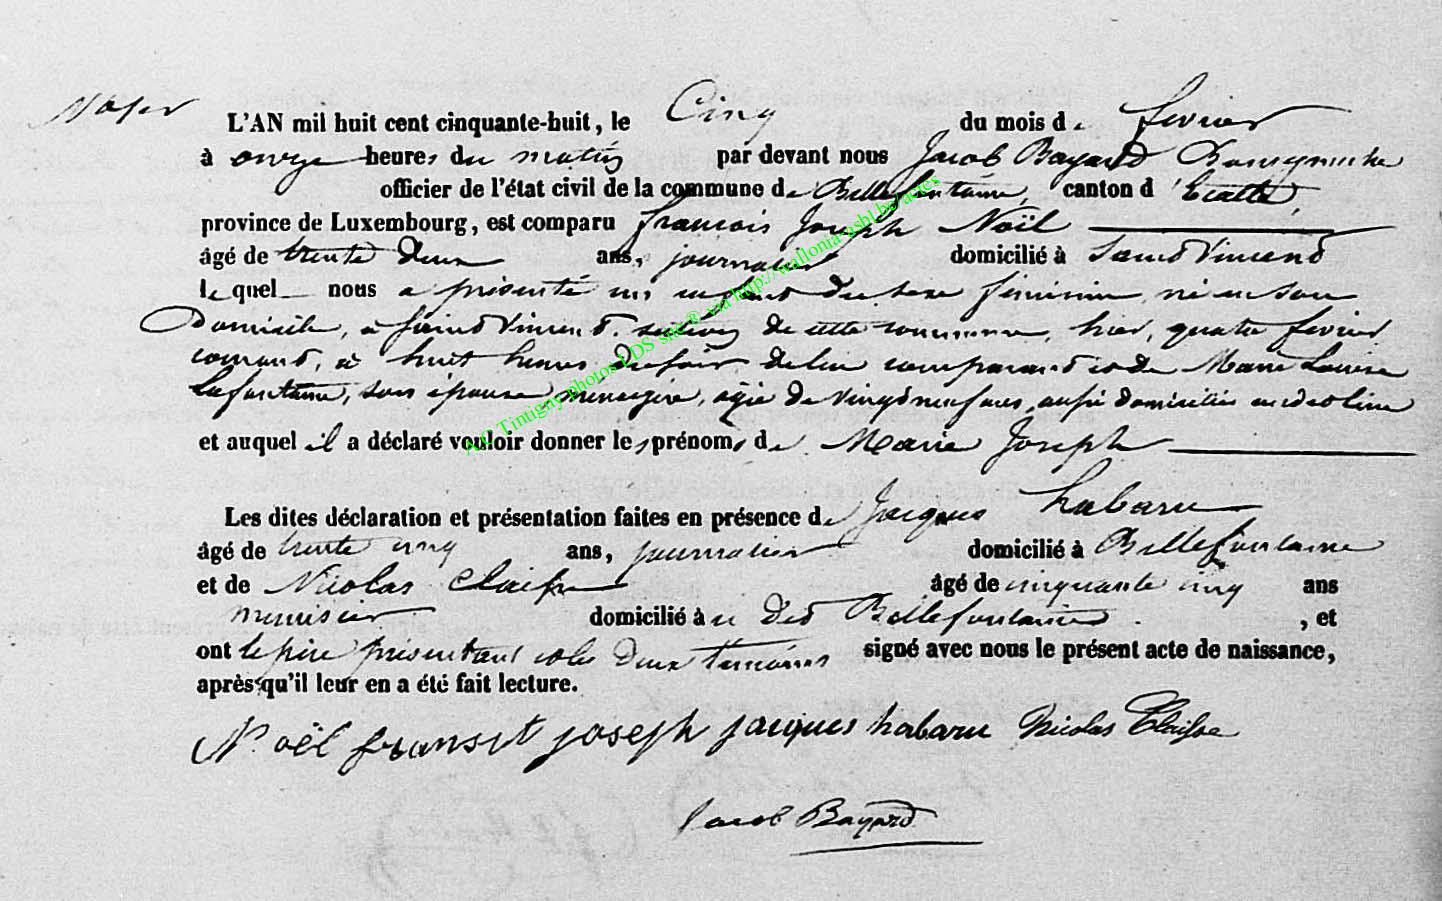 Noël
L'AN mil huit cent cinquante-huit, le Cinq du mois de fevrier
à onze heures du matin par devant nous Jacob Bayard Bourgmestre
officier de l'état civil de la commune de Bellefontaine, canton d'Etalle,
province de Luxembourg, est comparu francois Joseph Noël
âgé de trente deux ans, journalier domicilié à Saint Vincent
lequel nous a présenté un enfant du sexe féminin, né en son
Domicile, à Saint Vincent, section de cette commune, hier, quatre fevrier
courant, à huit heures du soir de lui comparant et de Marie Louise
Lafontaine, son épouse, menagère, agée de vingt neuf ans, aussi domiciliée audit lieu
et auquel il a déclaré vouloir donner les prénoms de Marie Joseph
Les dites déclaration et présentation faites en présence de Jacques habaru
âgé de trente cinq ans, journalier domicilié à Bellefontaine
et de Nicolas Claisse âgé de cinquante cinq ans
menuisier domicilié à u dit Bellefontaine , et
ont le père présentant et les deux témoins signé avec nous le présent acte de naissance,
après qu'il leur en a été fait lecture.
Noël fransit joseph jacques habaru Nicolas Claisse
Jacob Bayard
A.C. Tintigny photos LDS site® via http://wallonia-asbl.be/actes